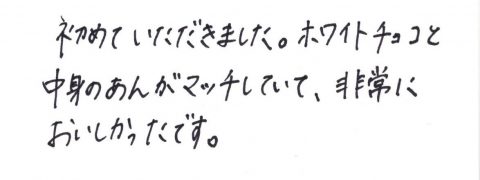 初めていただきました。ホワイトチョコと
中身のあんがマッチしていて、非常に
おいしかったです。